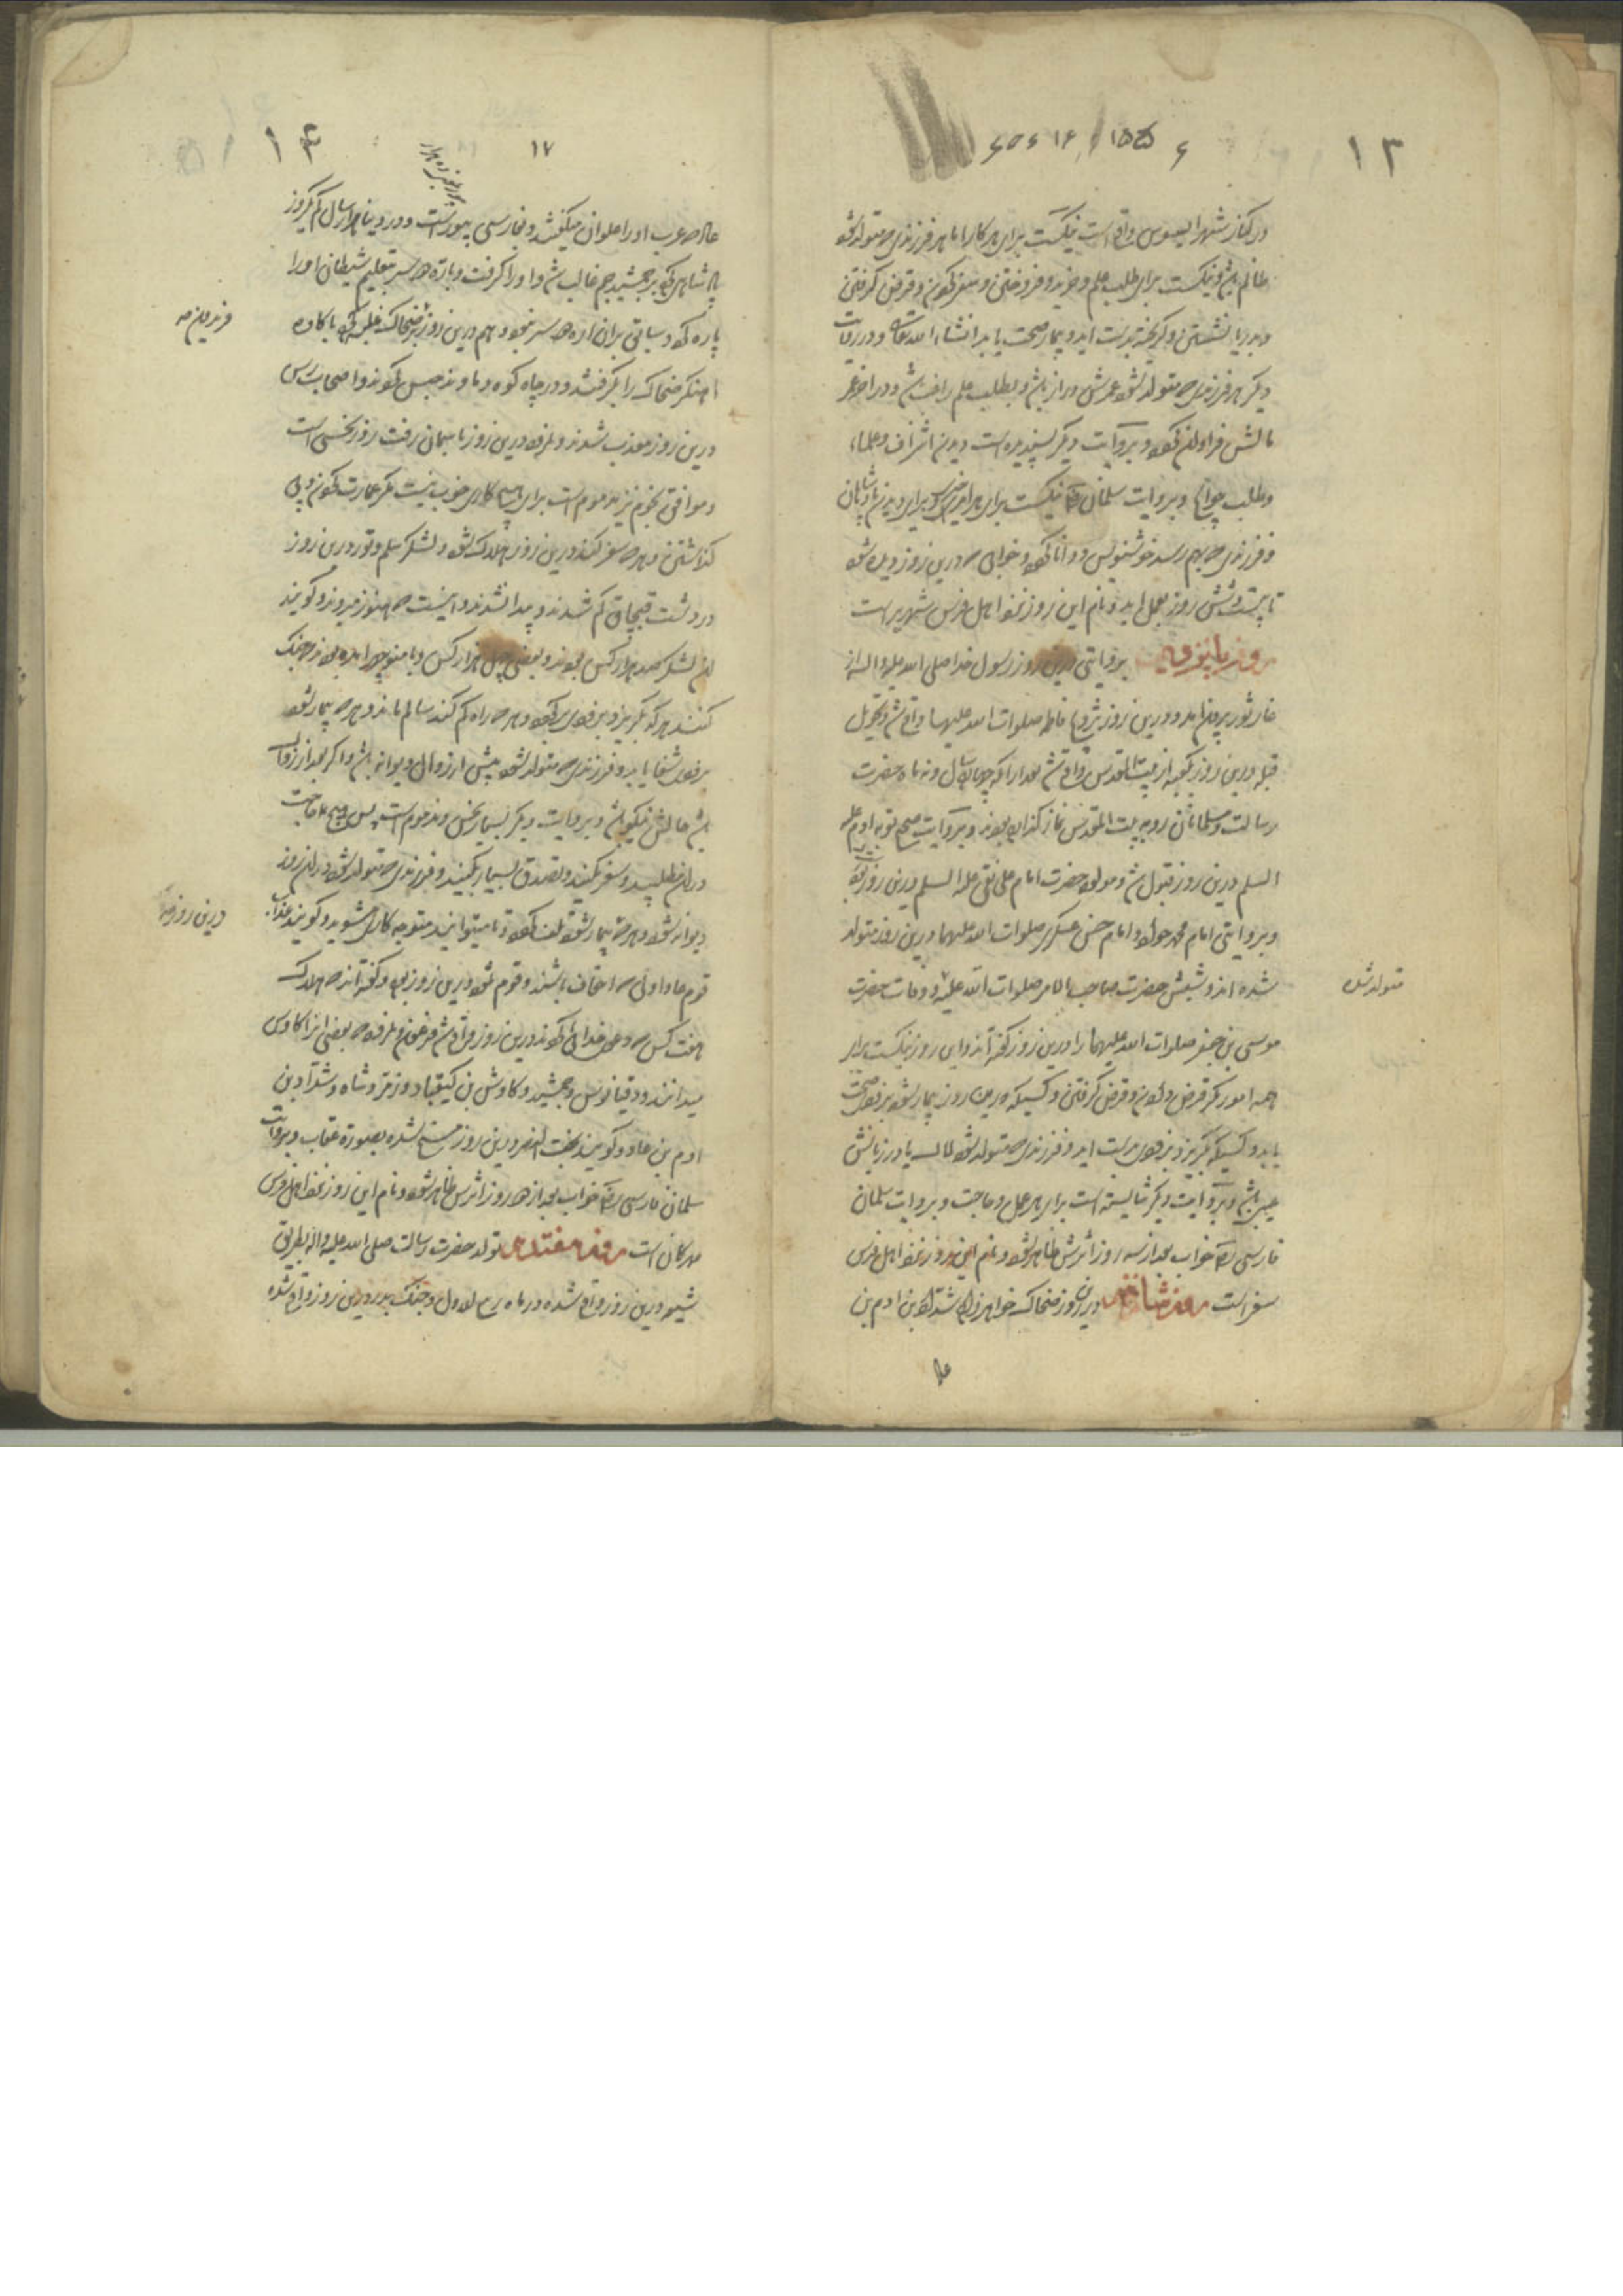 ۱۳
در کنار شهر افسوس واقع است نیکست برای هر کار اما هر فرزندی که متولد شود
ظالم باشد و نیکست برای طلب علم و خرید و فروختن و سفر کردن و قرض گرفتن
و بدریا نشستن و گریخته بدست آید و بیمار صحت یابد انشاء الله تعالی و در روایت
دیگر هر فرزندی که متولد شود عمرش دراز باشد و بطلب علم راغب باشد و در آخر عمر
مالش فراوان گردد و بروایت دیگر پسندیده است دیدن اشراف و علماء
و طلب حوایج و بروایت سلمان نیکست برای هر امر خیری و برای دیدن پادشاهان
و فرزندی که بهم رسد خوشنویس و دانا گردد و خوابی که درین روز دیده شود
تا بیست و شش روز بعمل آید و نام این روز نزد اهل فرس شهریر است
روز پانزدهم بروایتی درین روز رسول خدا صلی الله علیه و اله از
غار ثور بیرون آمد و درین روز تزویج فاطمه صلوات الله علیها واقع شد و تحویل
قبله درین روز بکعبه از بیت المقدس واقع شد بعد از آنکه چهارده سال و نه ماه حضرت
رسالت و مسلمانان رو به بیت المقدس نماز گذارده بودند و بروایت صحیح توبه آدم علیه
السلم درین روز قبول شد و مولود حضرت امام علی نقی علیه السلم درین روز بود
و بروایتی امام محمد جواد و امام حسن عسکری صلوات الله علیهما درین روز متولد
شده اند و شبش حضرت صاحب الامر صلوات الله علیه و وفات حضرت
متولد شد
موسی بن جعفر صلوات الله علیهما را درین روز گفته اند و این روز نیکست برای
همه امور مگر قرض دادن و قرض گرفتن و کسیکه درین روز بیمار شود بزودی صحت
یابد و کسیکه بگریزد بزودی بدست آید و فرزندی که متولد شود لال یا در زبانش
عیبی باشد و بروایت دیگر شایسته است برای هر عمل و حاجت و بروایت سلمان
فارسی خواب بعد از سه روز اثرش ظاهر شود و نام این روز نزد اهل فرس
مهر است روز شانزدهم درین روز ضحاک خواهرزاده شداد بن ادم بن
۱۷
عاد که عرب او را علوان میگفتند و بفارسی بیوراسب و در دنیا هزار سال کم یکروز
پادشاهی کرد بر جمشید جم غالب شد و او را گرفت و باره دو سر بتعلیم شیطان او را
پاره کرد و سابق بران اره دو سر نبود و هم درین روز بر ضحاک غلبه کرد با کاوه
فریدون که
آهنگر ضحاک را بگرفتند و در چاه کوه دماوند حبس کردند و اصحاب رس
درین روز معذب شدند و نمرود درین روز باسمان رفت روز نحسی است
و موافق نجوم نیز مذموم است برای هیچ کاری خوب نیست مگر عمارت کردن و پی
گذاشتن و هر که سفر کند درین روز هلاک شود و لشکر سلم و تور درین روز
در دشت قبچاق گم شدند و پیدا نشدند و اینست که هنوز میروند و گویند
آن لشکر صد هزار کس بودند و بعضی چهل هزار کس و با منوچهر آمده بودند جنگ
کنند هر که بگریزد بزودی برگردد و هر که راه گم کند سالم ماند و هر که بیمار شود
بزودی شفا یابد و فرزندی که متولد شود پیش از زوال دیوانه باشد و اگر بعد از زوال
باشد حالش نیکو باشد و بروایت دیگر بسیار نحس و مذموم است پس هیچ حاجت
در آن مطلبید و سفر مکنید و تصدق بسیار بکنید و فرزندی که متولد شود در آن روز
دیوانه شود و هر که بیمار شود تلف گردد و تا میتوانید متوجه کاری مشوید و گویند عذاب
درین روز بود
قوم عاد اولی که احقاف باشند و قوم ثمود درین روز بود و گفته اند که هلاک
هفت کس که دعوی خدائی کردند درین روز واقع شد فرعون و نمرود که بعضی آنرا کاوس
میدانند و دقیانوس و جمشید و کاوش بن کیقباد و زمرد شاه و شداد بن
ادم بن عاد و گویند بخت النصر درین روز مسخ شده بصورت عقاب و بروایت
سلمان فارسی خواب بعد از دو روز اثرش ظاهر شود و نام این روز نزد اهل فرس
مهرکان است روز هفتدهم تولد حضرت رسالت صلی الله علیه و اله بطریق
شیعه درین روز واقع شده در ماه ربیع الاول و جنگ بدر درین روز واقع شده